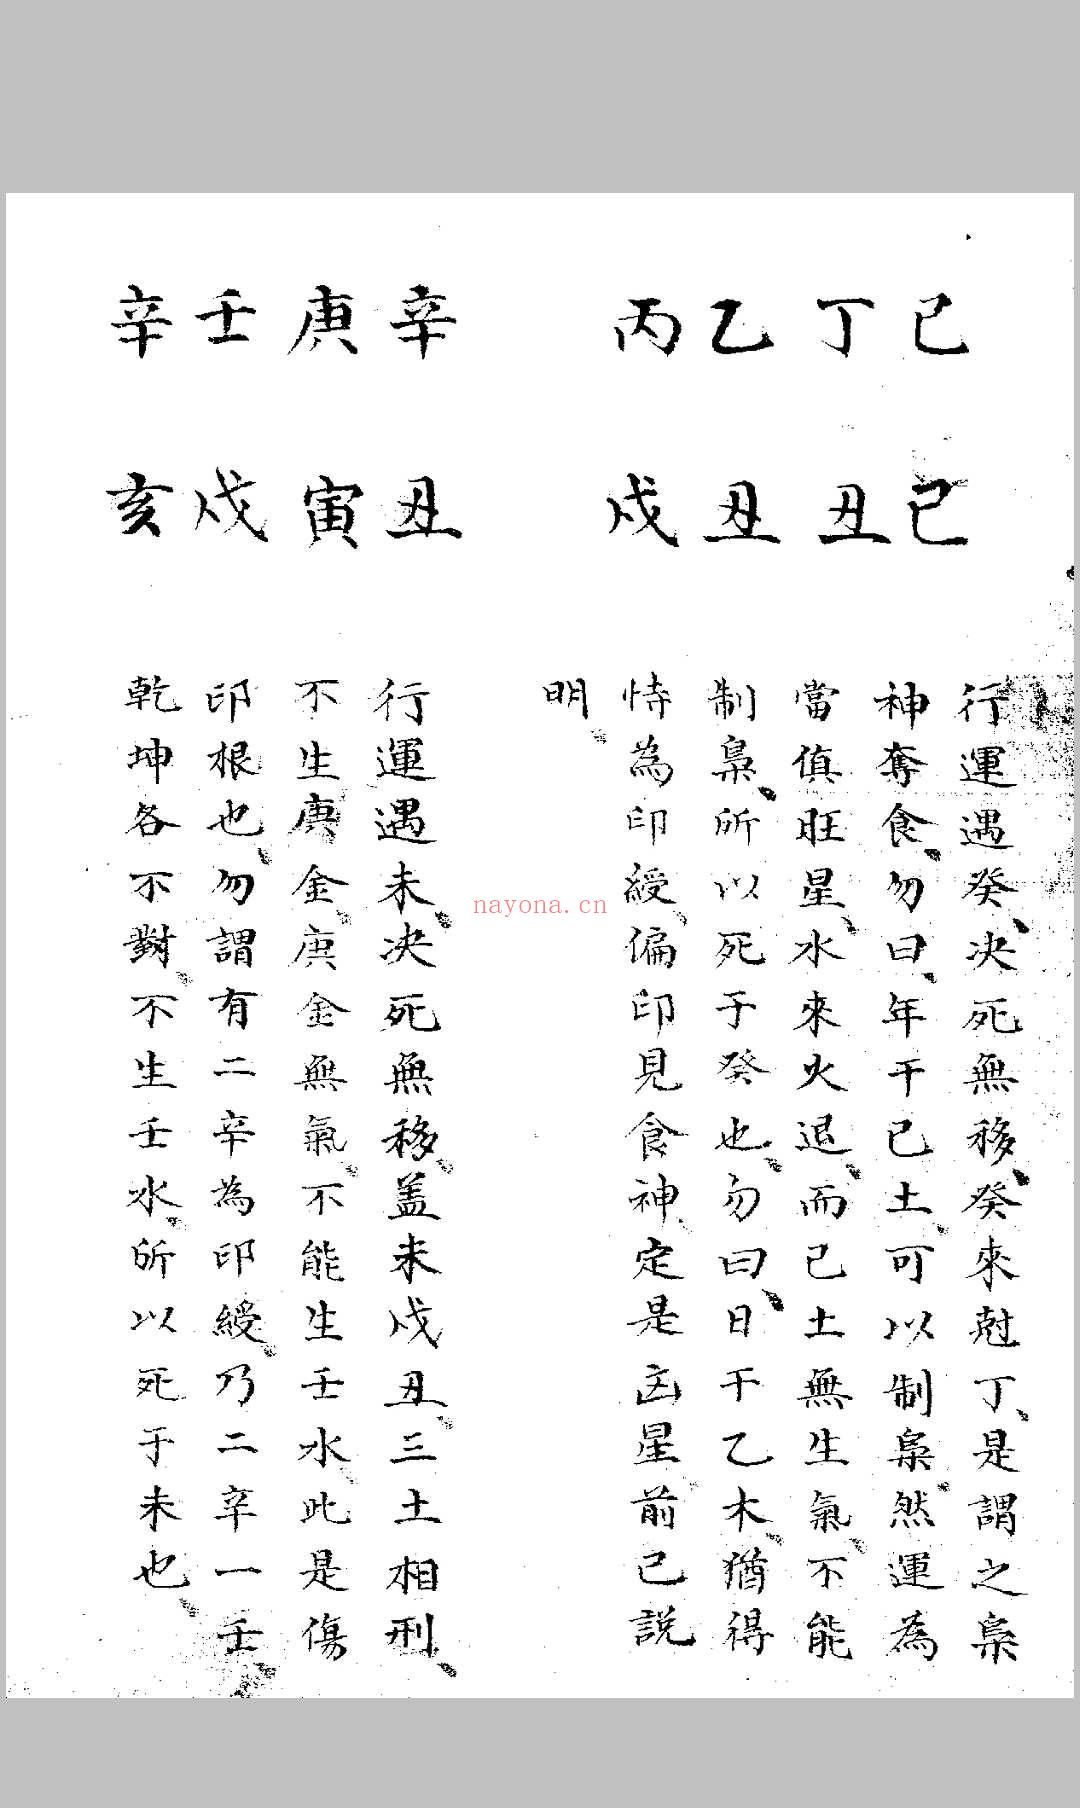 己巳
丁丑
乙丑
丙戌
行運遇癸决死無移癸來尅丁是謂之梟
神奪食勿曰年干己土可以制梟然運為
當值旺星水來火退而己土無生氣不能
制梟所以死于癸也勿曰日干乙木猶得
恃為印綬偏印見食神定是凶星前已説
明
辛丑
庚寅
壬戌
辛亥
行運遇未决死無移盖未戌丑三土相刑
不生庚金庚金無氣不能生壬水此是傷
印根也勿謂有二辛為印綬乃二辛一壬
乾坤各不對不生壬水所以死于未也
nayona.cn